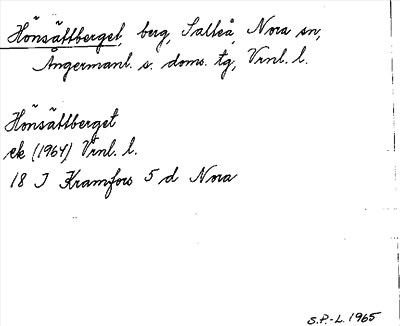 Hönsättberget, berg, Salteå, Nora sn,
Ångermanl. s. doms. tg, Vrnl. l.
Hönsättberget
ek (1964) Vrnl. l.
18 I Kramfors 5 d Nora
S.P.-L. 1965